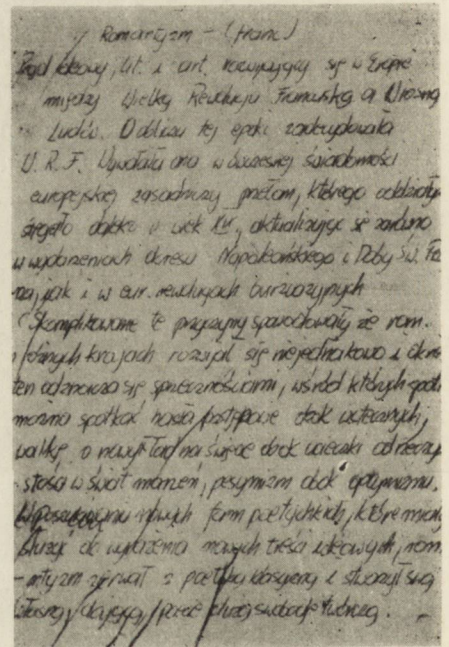 Romantyzm – (franc)
Prąd ideowy, lit. i art. rozwijający się w Europie
między Wielką Rewolucją Francuską a Wiosną
Ludów. O obliczu tej epoki zadecydowała
W. R. F. Wywołała ona w ówczesnej świadomości
europejskiej zasadniczy przełom, którego oddziały-
sięgało daleko w wiek XIX, aktualizując się zarówno
w wydarzeniach okresu Napoleońskiego i Doby Św.
jak i w eur. rewolucjach burżuazyjnych
Skomplikowane te przyczyny spowodowały że rom.
różnych krajach rozwijał się niejednakowo i okres
ten odznacza się sprzecznościami, wśród których
można spotkać hasła postępowe obok wstecznych,
walkę o nowy ład na świecie obok ucieczki od rzeczy-
stości w świat marzeń, pesymizm obok optymizmu.
W poszukiwaniu nowych form poetyckich, które miały
służyć do wyrażenia nowych treści ideowych, rom
-ntyzm zerwał z poetyką klasyczną i stworzył swą
własną, dającą swobodę twórczą.